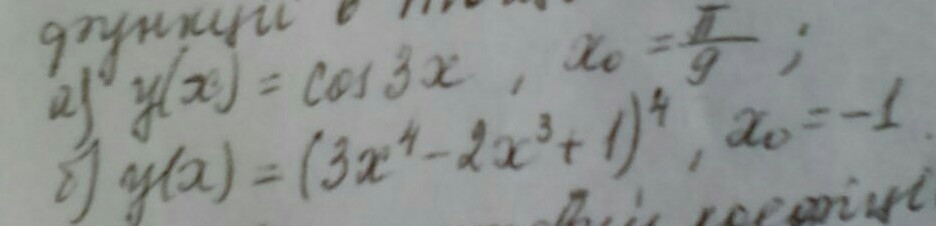 функції в точці
а) y(x) = cos 3x , x₀ = π/9 ;
б) y(x) = (3x⁴ - 2x³ + 1)⁴ , x₀ = -1